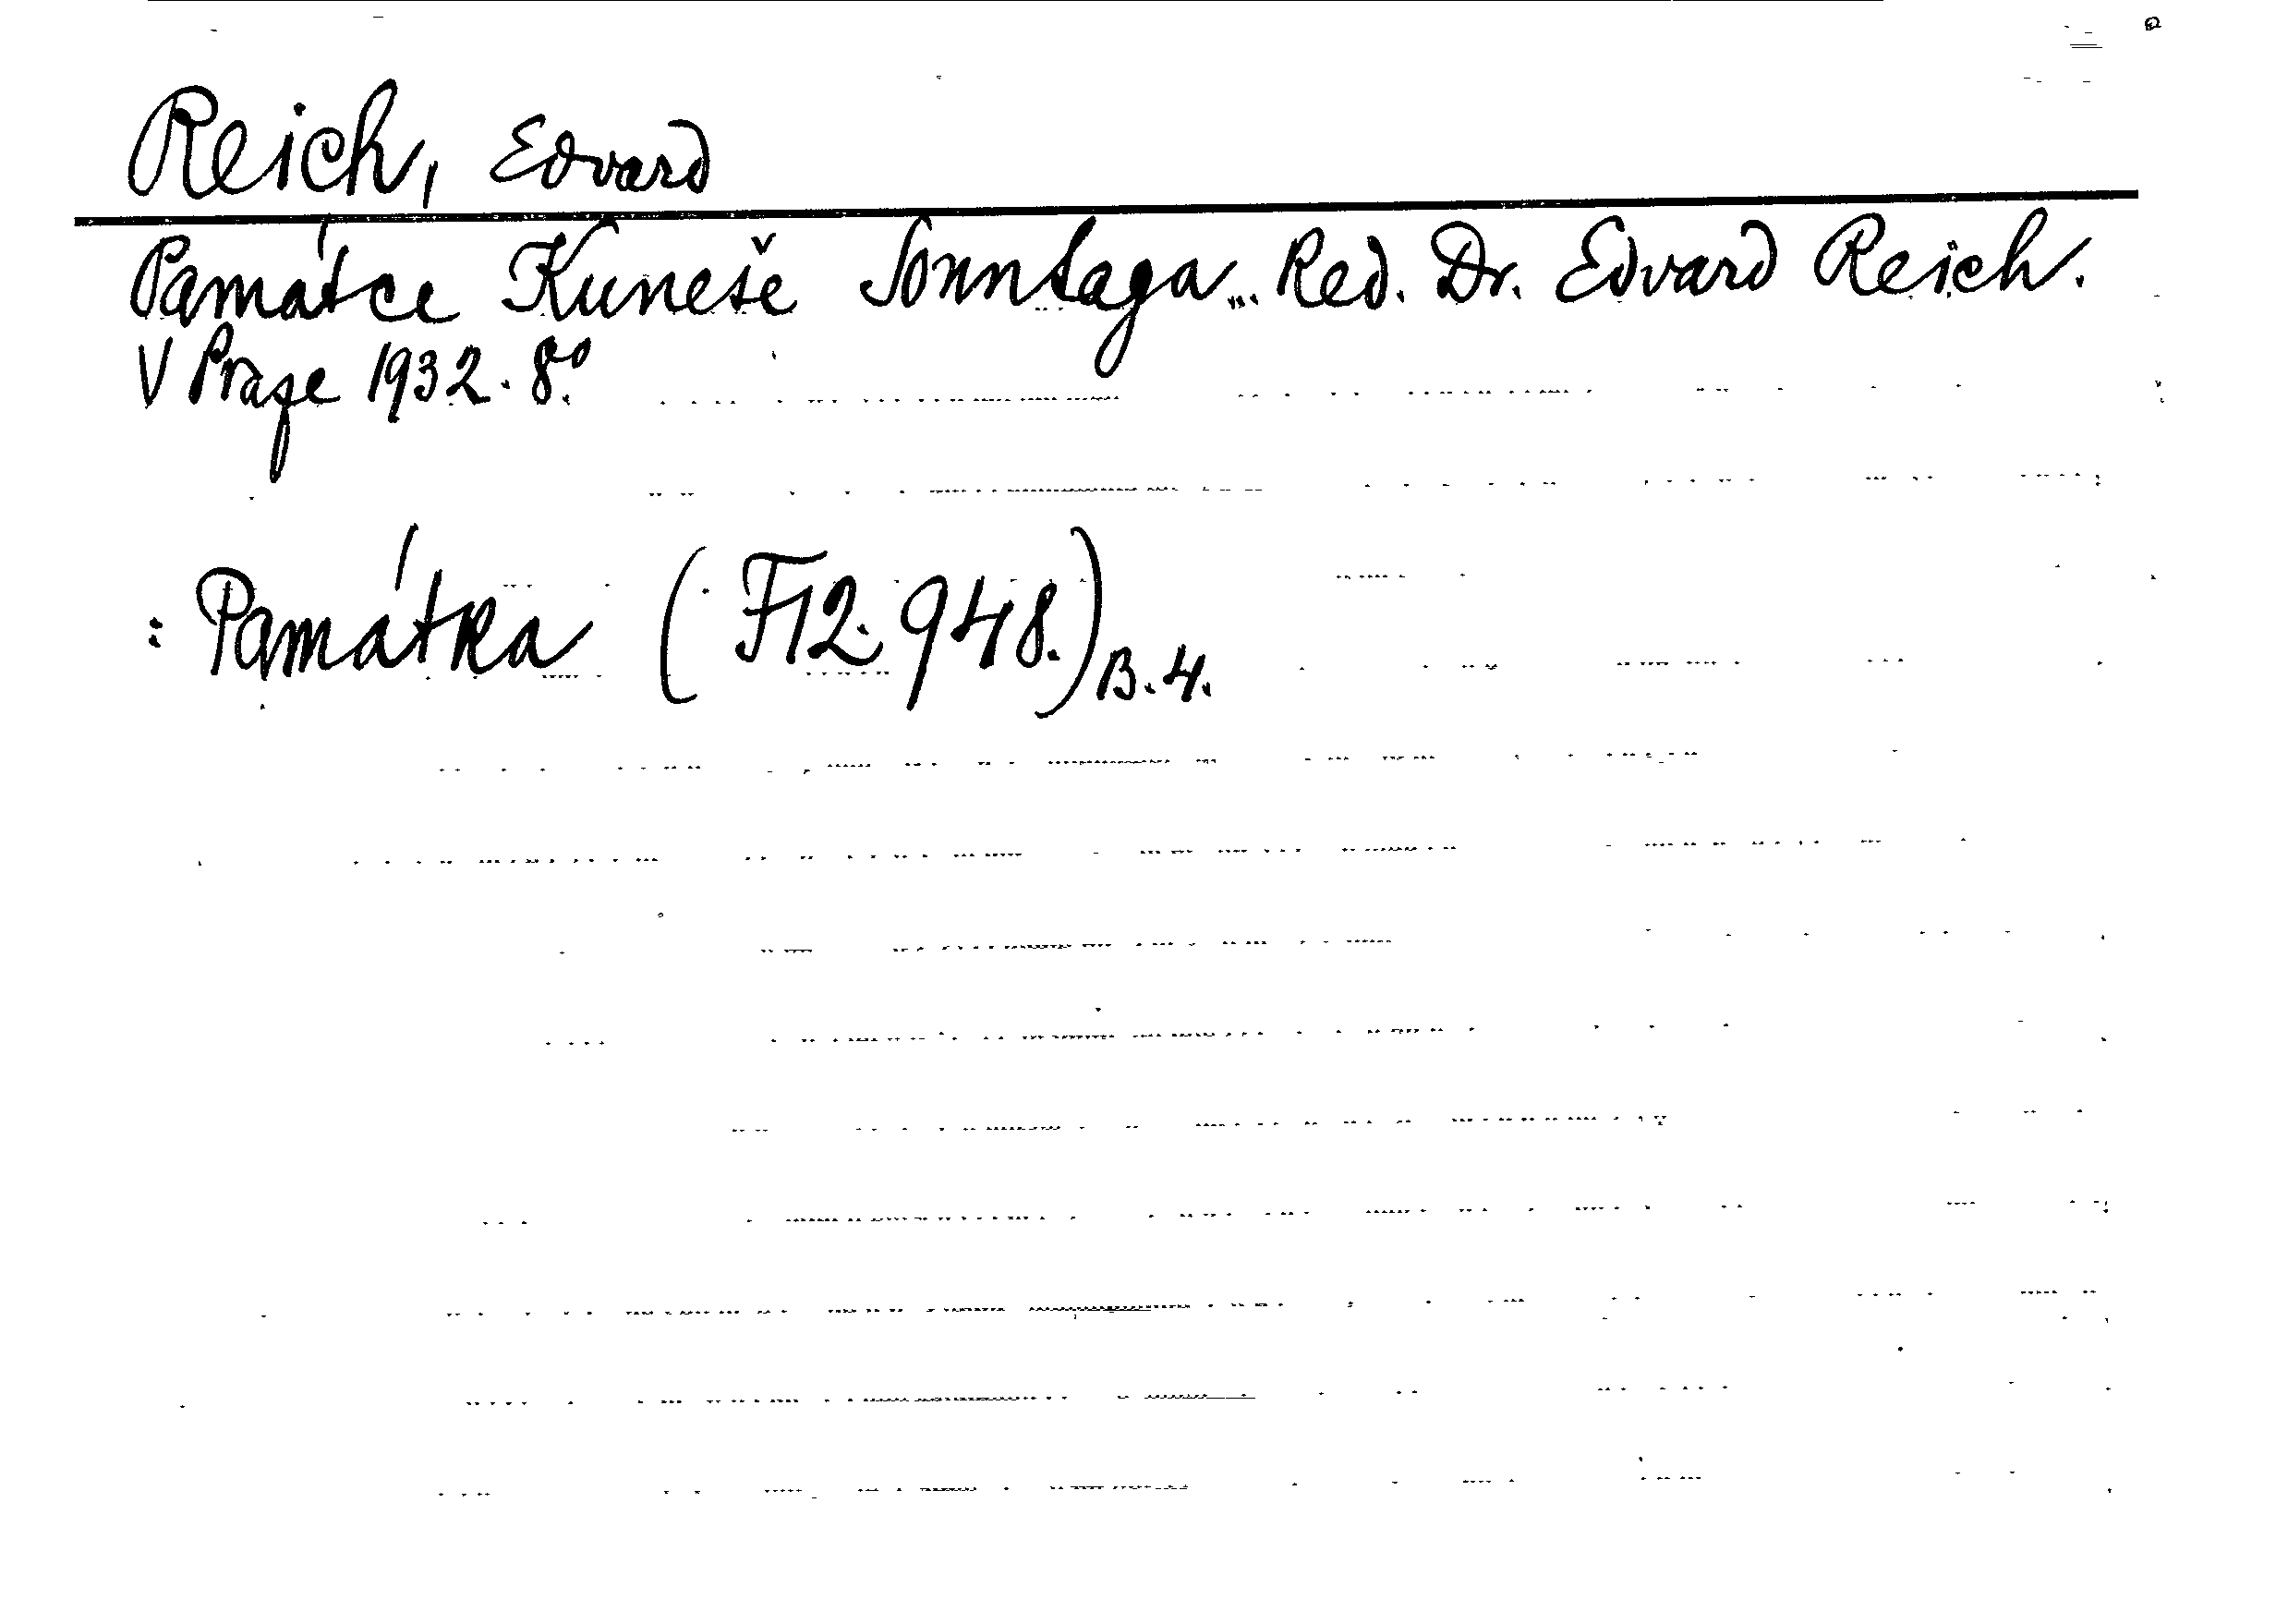 Reich, Edvard
Památce Kuneše Sonntaga... Red. Dr. Edvard Reich.
V Praze 1932. 8.º
: Památka (F 12. 948.) B. 4.